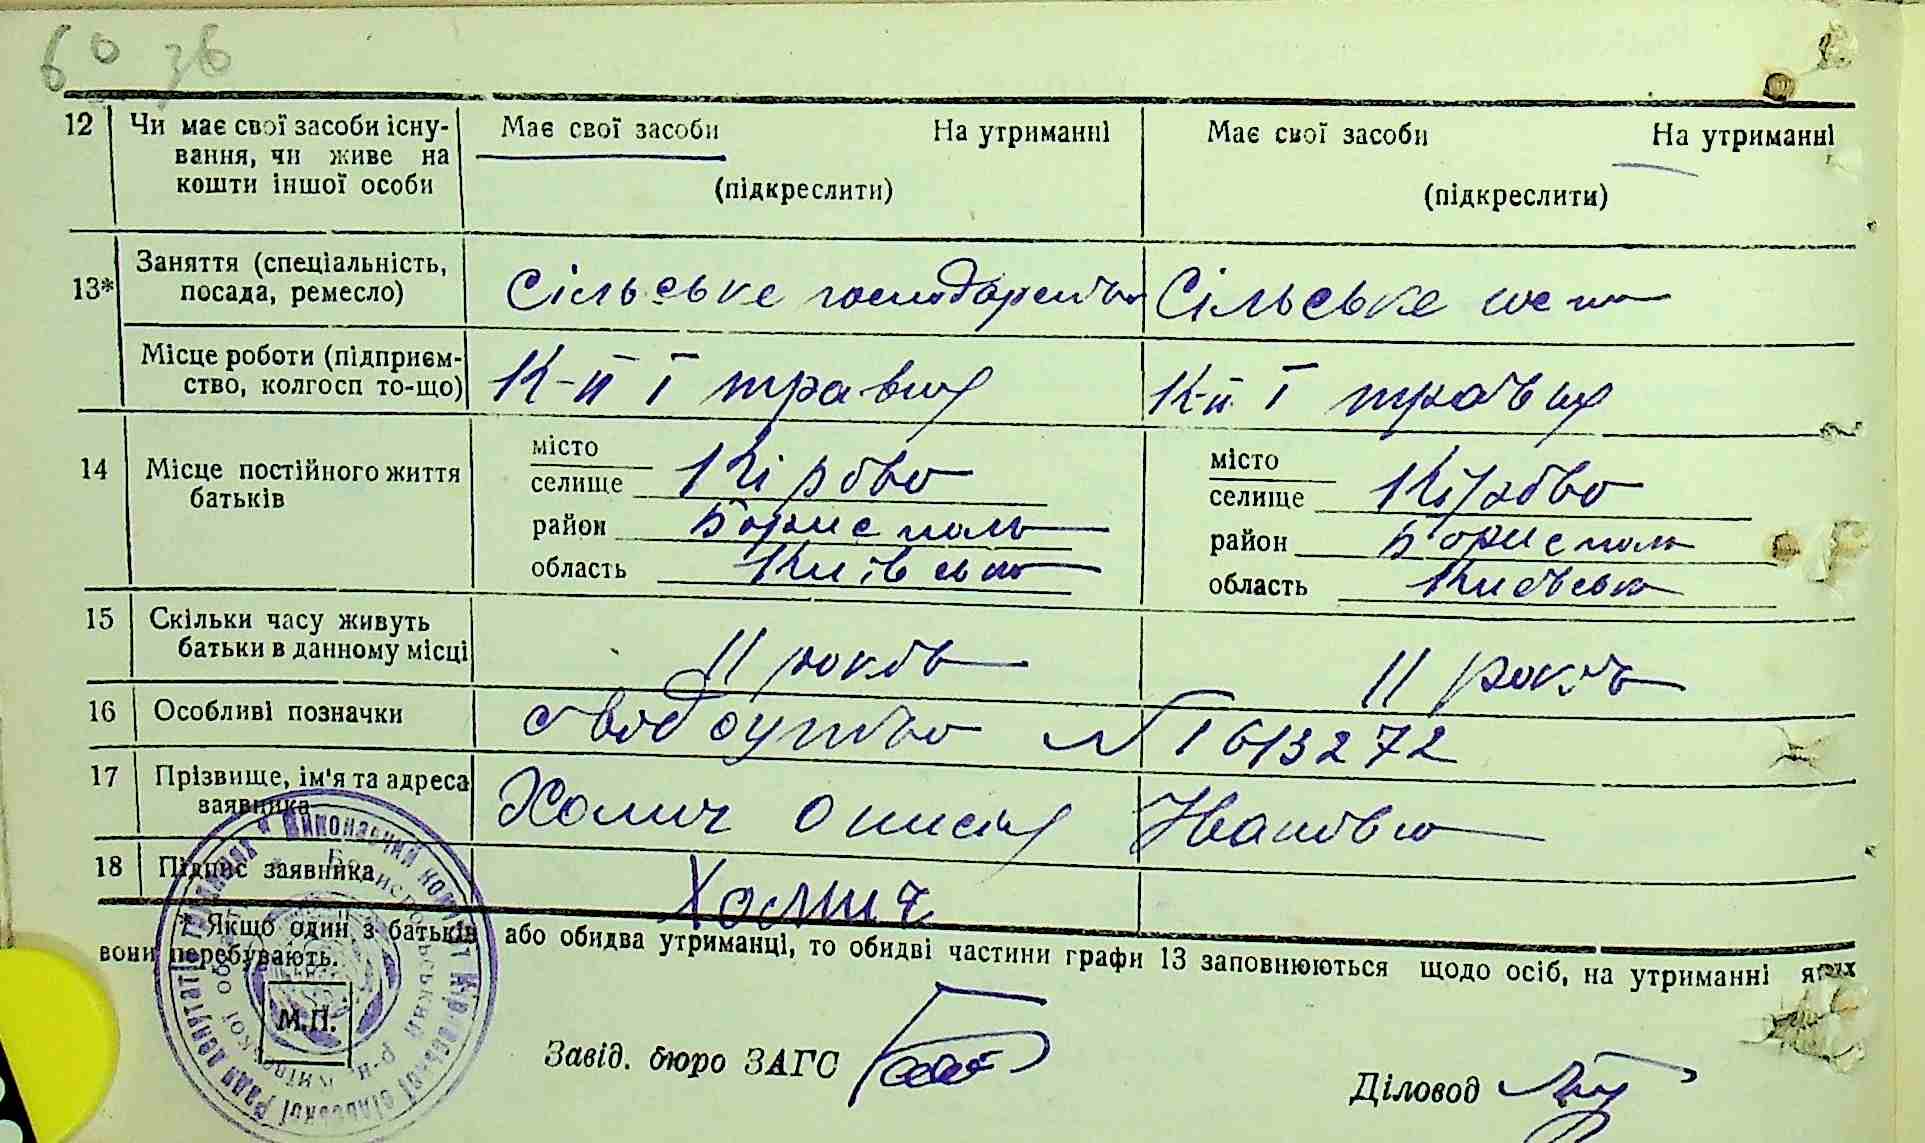 60 зв
12 Чи має свої засоби існу- Має свої засоби На утриманні Має свої засоби На утриманні
вання, чи живе на
кошти іншої особи (підкреслити) (підкреслити)
13* Заняття (спеціальність, посада, ремесло) Сільське господарство Сільське
Місце роботи (підприєм- К-п І травня К-п І травня
ство, колгосп то-що)
14 Місце постійного життя батьків
місто Кірово місто Кірово
селище селище
район Бориспол район Бориспол
область Київська область Київська
15 Скільки часу живуть
батьки в данному місці 11 років 11 років
16 Особливі позначки свідоцтво № 1613272
17 Прізвище, ім'я та адреса
заявника Хомич Онисія Іванівна
18 Підпис заявника Хомич
* Якщо один з батьків або обидва утриманці, то обидві частини графи 13 заповнюються щодо осіб, на утриманні яких
вони перебувають.
М.П.
Завід. бюро ЗАГС
Діловод